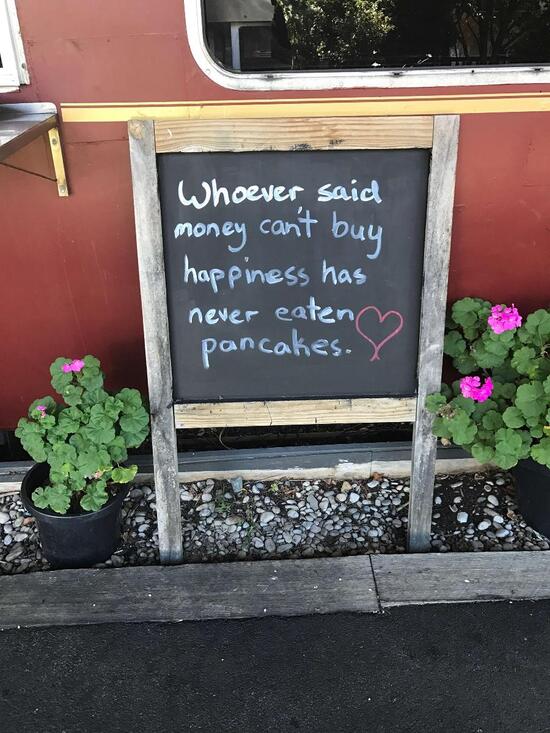 Whoever said
money can't buy
happiness has
never eaten
pancakes.